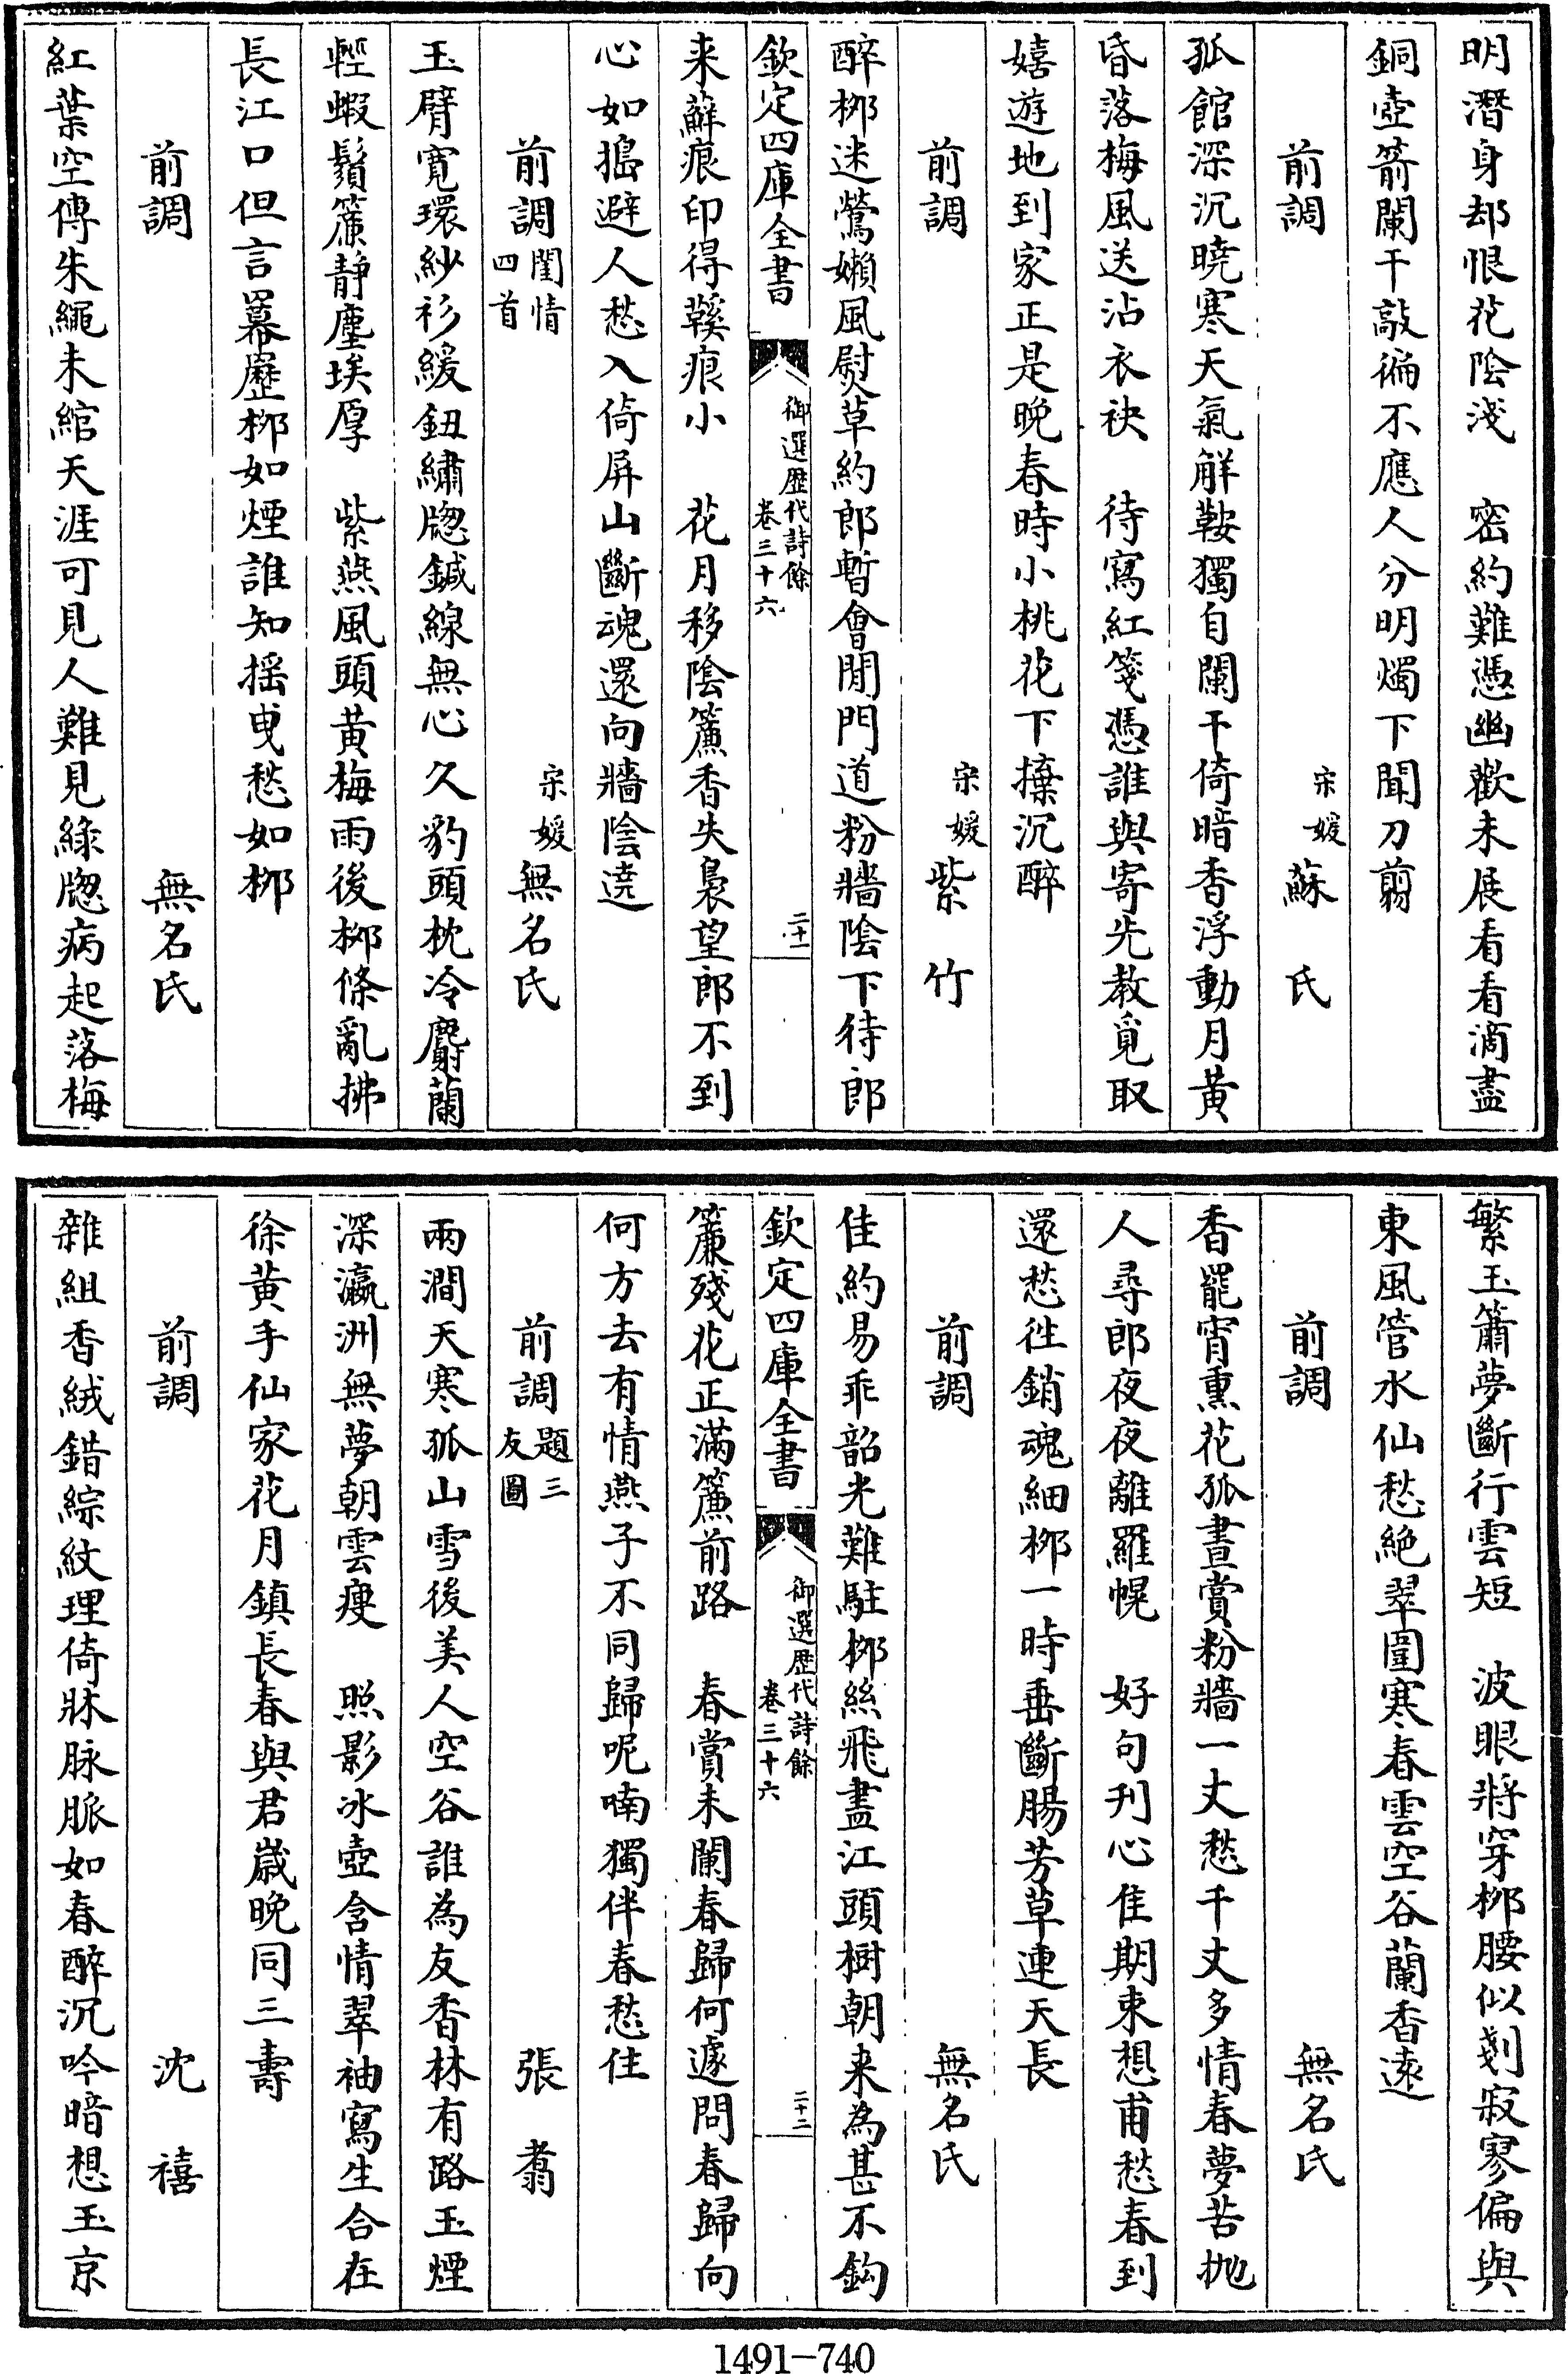 明潛身却恨花陰淺　密約難憑幽歡未展看看滴盡
銅壺箭闌干敲徧不應人分明燭下聞刀翦
前調　宋媛蘇氏
孤館深沉曉寒天氣解鞍獨自闌干倚暗香浮動月黄
昏落梅風送沾衣袂　待寫紅箋憑誰與寄先教覓取
嬉遊地到家正是晚春時小桃花下攤沉醉
前調　宋媛紫竹
醉栁迷鶯嬾風熨草約郎暫會閒門道粉牆隂下待郎
欽定四庫全書　御選歴代詩餘卷三十六　二十一
来蘚痕印得鞵痕小　花月移陰簾香失裊望郎不到
心如搗避人愁入倚屏山斷魂還向牆陰遶
前調閨情四首　宋媛無名氏
玉臂寛環紗衫緩鈕繡牕鍼線無心久豹頭枕冷麝蘭
輕蝦鬚簾靜塵埃厚　紫燕風頭黄梅雨後栁條亂拂
長江口但言羃䍥栁如煙誰知摇曳愁如栁
前調　無名氏
紅葉空傳朱繩未綰天涯可見人難見緑牕病起落梅
繁玉簫夢斷行雲短　波眼將穿栁腰似剗寂寥偏與
東風管水仙愁絶翠圍寒春雲空谷蘭香逺
前調　無名氏
香罷宵熏花孤晝賞粉牆一丈愁千丈多情春夢苦抛
人尋郎夜夜離羅幌　好句刋心佳期束想甫愁春到
還愁徃銷魂細栁一時垂斷腸芳草連天長
前調　無名氏
佳約易乖韶光難駐栁絲飛盡江頭樹朝来為甚不鈎
欽定四庫全書　御選歴代詩餘卷三十六　二十二
簾殘花正滿簾前路　春賞未闌春歸何遽問春歸向
何方去有情燕子不同歸呢喃獨伴春愁住
前調題三友圖　張翥
兩澗天寒孤山雪後美人空谷誰為友香林有路玉煙
深瀛洲無夢朝雲痩　照影冰壺含情翠袖寫生合在
徐黄手仙家花月鎮長春與君嵗晚同三壽
前調　沈禧
雜組香絨錯綜紋理倚牀脉脈如春醉沉吟暗想玉京
1491—740